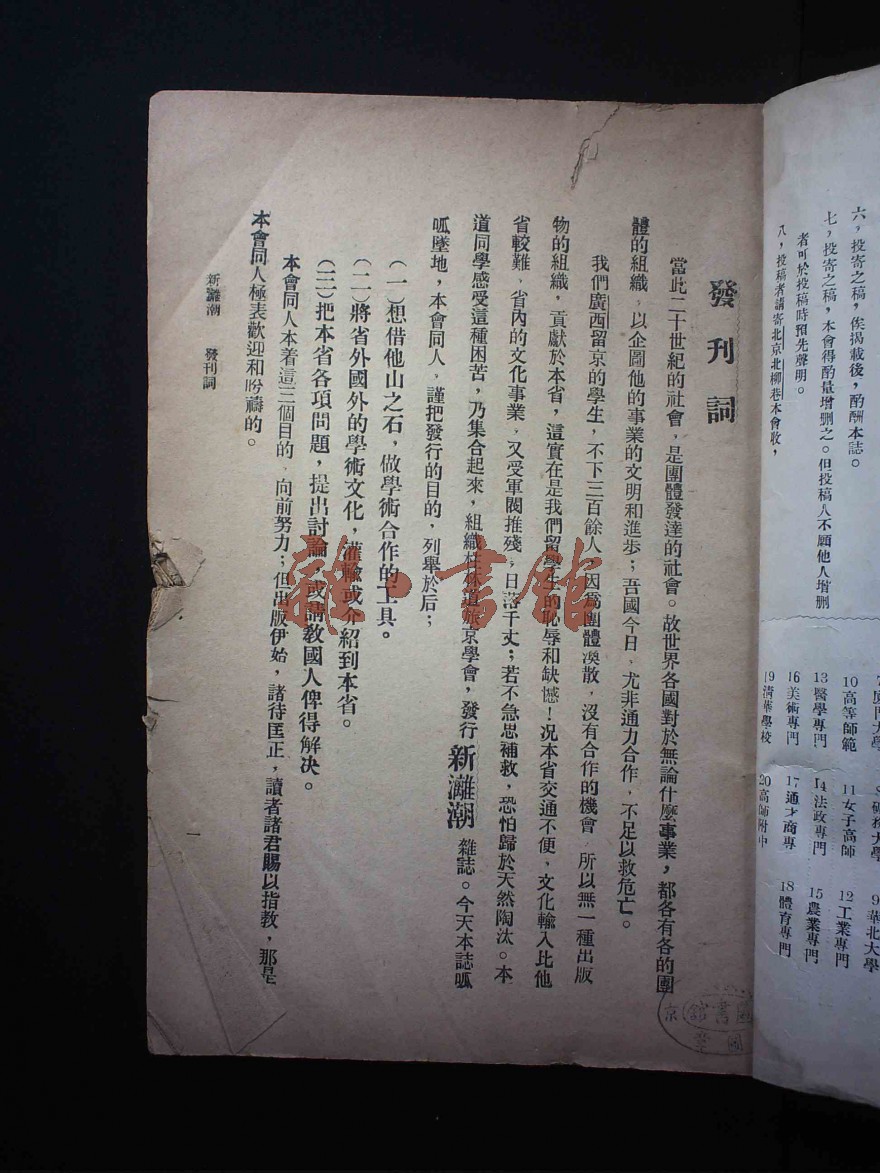 六，投寄之稿，俟揭載後，酌酬本誌。
七，投寄之稿，本會得酌量增删之。但投稿人不願他人增删
者可於投稿時預先聲明。
八，投稿者請寄北京北柳巷本會收，
10高等師範
11女子高師
12工業專門
13醫學專門
14法政專門
15農業專門
16美術專門
17通才商專
18體育專門
19清華學校
20高師附中
9華北大學
發刊詞
當此二十世紀的社會，是團體發達的社會。故世界各國對於無論什麼事業，都各有各的團
體的組織，以企圖他的事業的文明和進步；吾國今日，尤非通力合作，不足以救危亡。
我們廣西留京的學生，不下三百餘人，因爲團體渙散，沒有合作的機會，所以無一種出版
物的組織，貢獻於本省，這實在是我們留學生的恥辱和缺憾！况本省交通不便，文化輸入比他
省較難，省內的文化事業，又受軍閥推殘，日落千丈；若不急思補救，恐怕歸於天然陶汰。本
道同學感受這種困苦，乃集合起來，組織桂林道旅京學會，發行新灕潮雜誌。今天本誌呱
呱墜地，本會同人，謹把發行的目的，列舉於后；
（一）想借他山之石，做學術合作的工具。
（二）將省外國外的學術文化，灌輸或介紹到本省。
（三）把本省各項問題，提出討論，或請教國人俾得解决。
本會同人本着這三個目的，向前努力；但出版伊始，諸待匡正，讀者諸君賜以指教，那是
本會同人極表歡迎和盼禱的。
新灕潮　發刊詞
一